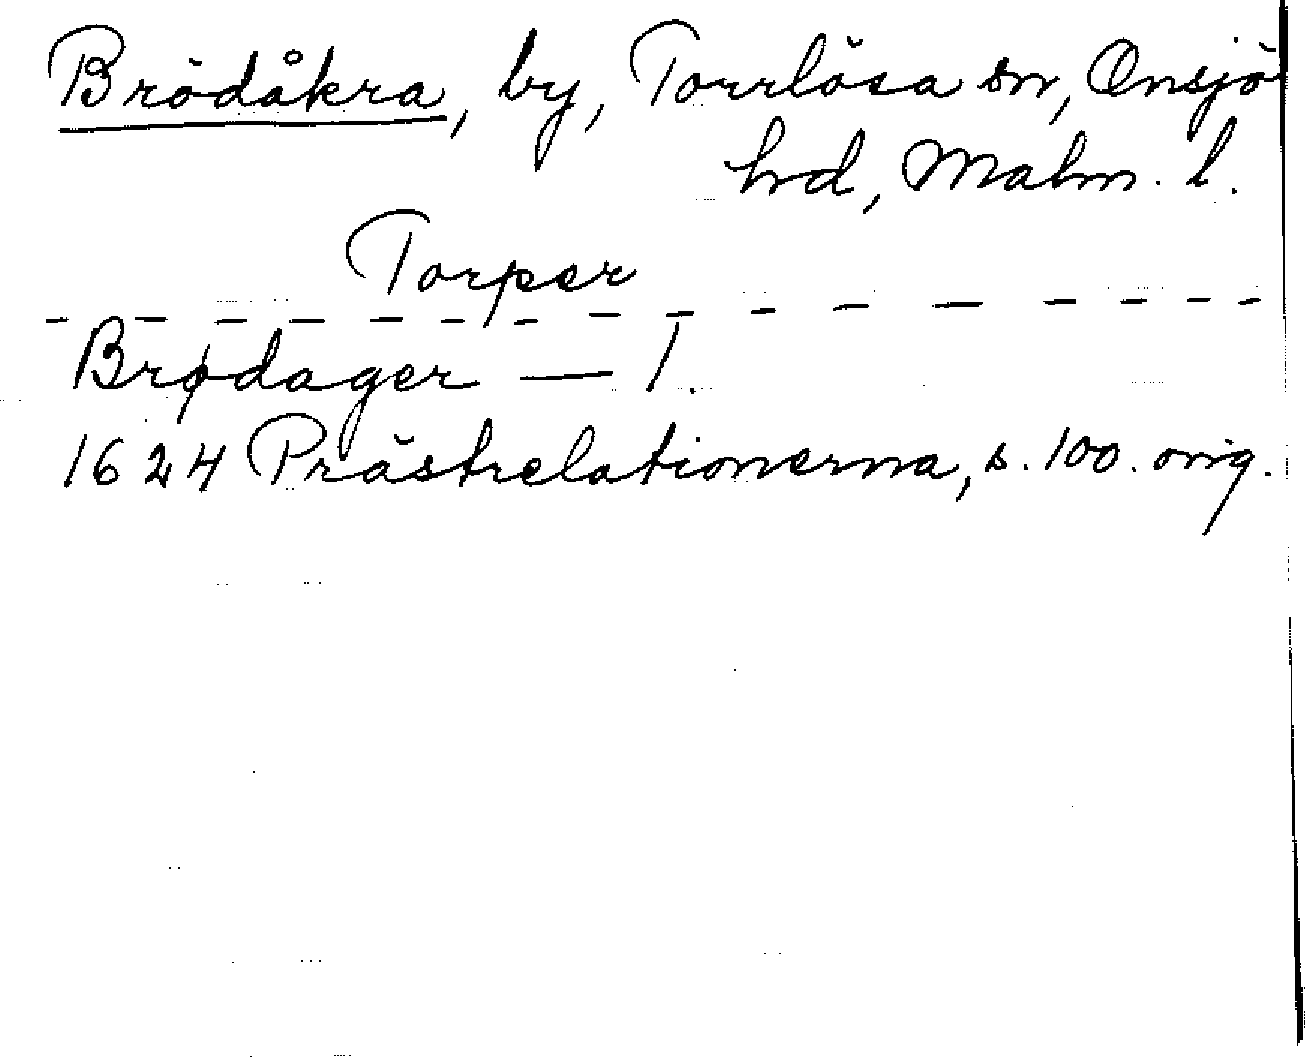 Brödåkra, by, Torrlösa sn, Onsjö
hrd, Malm. l.
Torper
- - - - - - - - - - - - - - - -
Brødager — 1.
1624 Prästrelationerna, s. 100. orig.